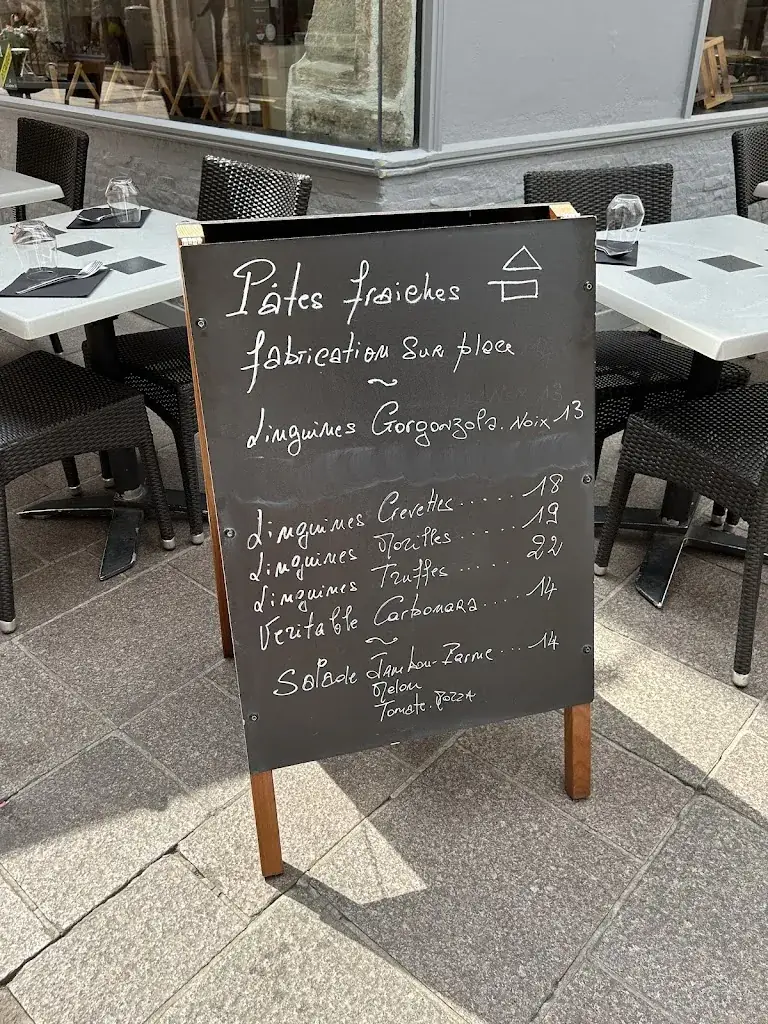 Pâtes fraiches
fabrication sur place
~
Linguines Gorgonzola. Noix 13
Linguines Crevettes ..... 18
Linguines Morilles ..... 19
Linguines Truffes ...... 22
Veritable Carbonara ..... 14
~
Salade Jambon-Parme ... 14
Melon
Tomate. Mozza